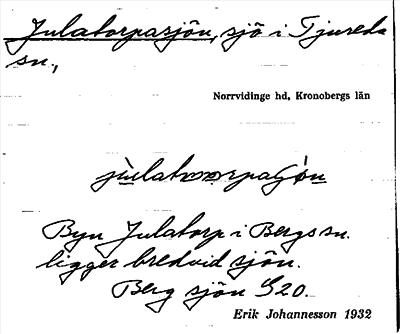 Julatorpasjön, sjö i Tjureda
sn.,
Norrvidinge hd, Kronobergs län
Byn Julatorp i Bergs sn.
ligger bredvid sjön.
Berg sjön S20.
Erik Johannesson 1932